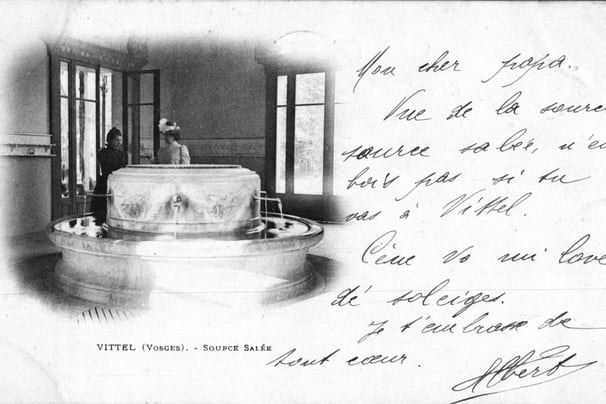 Mon cher papa.
Vue de la source
source salée, n'en
bois pas si tu
vas à Vittel.
vo mi
dé
Je t'embrasse de
tout cœur.
Albert
VITTEL (VOSGES). - SOURCE SALÉE